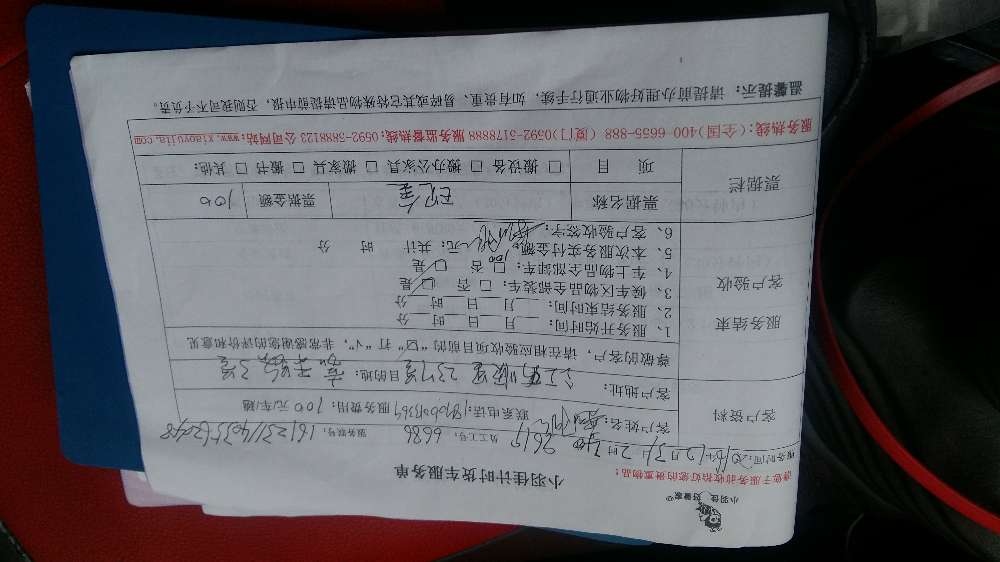 小羽佳 好管家®
小羽佳计时货车服务单
请您于服务前收拾好您的贵重物品!
服务时间:2016年12月31日 员工工号: 6686 服务账号: 1612311403562048
客户资料
客户姓名: 联系电话: 服务费用: 100 元/车/趟
客户地址: 目的地:
服务结束
客户验收
尊敬的客户,请在相应验收项目前的“☑”打“√”,非常感谢您的评价和意见
1、服务开始时间: 月 日 时 分
2、服务结束时间: 月 日 时 分
3、候车区物品全部装车: □ 否 □ 是
4、车上物品全部卸车: □ 否 □ 是
5、本次服务实付金额: 100 元; 共计 时 分
6、客户验收签字:
票据栏
票据名称 现金 票据金额 100
项 目 □ 搬设备 □ 搬办公家具 □ 搬家具 □ 搬书 □ 其他:
服务热线:(全国)400-6655-888 (厦门)0592-5178888 服务监督热线:0592-5888123 公司网站:www.xiaoyujia.com
温馨提示: 请提前办理好物业通行手续, 如有贵重、易碎或其它特殊物品请提前申报, 否则我司不予负责。